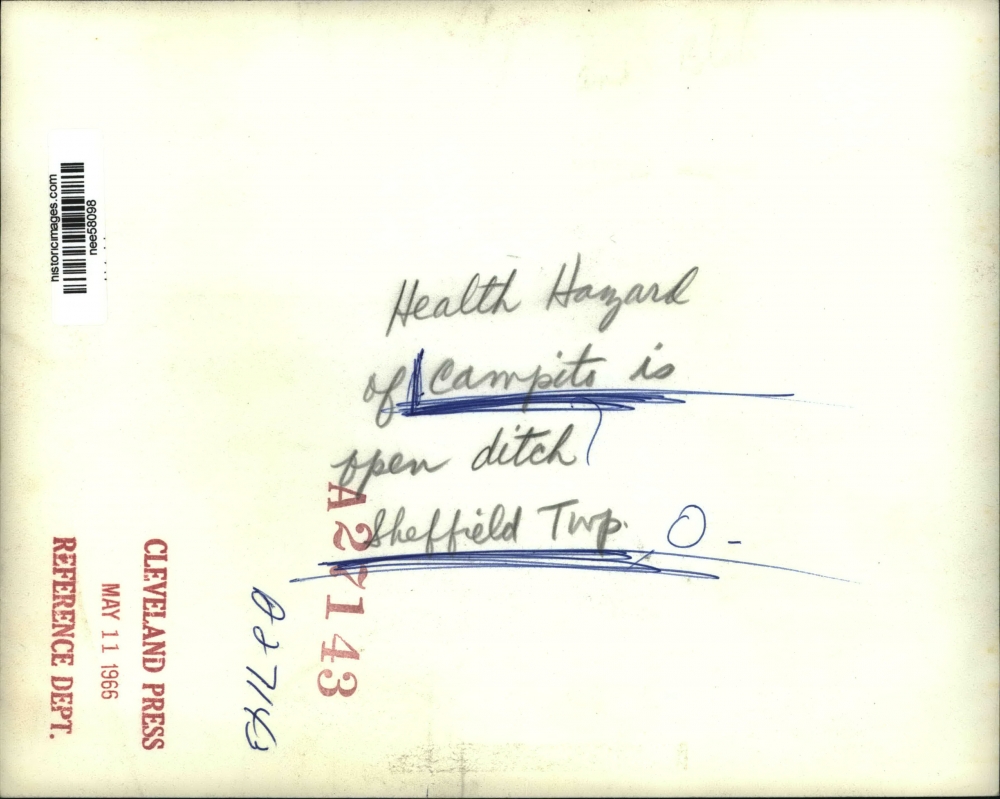 Health Hazard
of Campito is
open ditch
Sheffield Twp. O-
A27143
A27143
CLEVELAND PRESS
MAY 11 1966
REFERENCE DEPT.
historicimages.com
nee58098